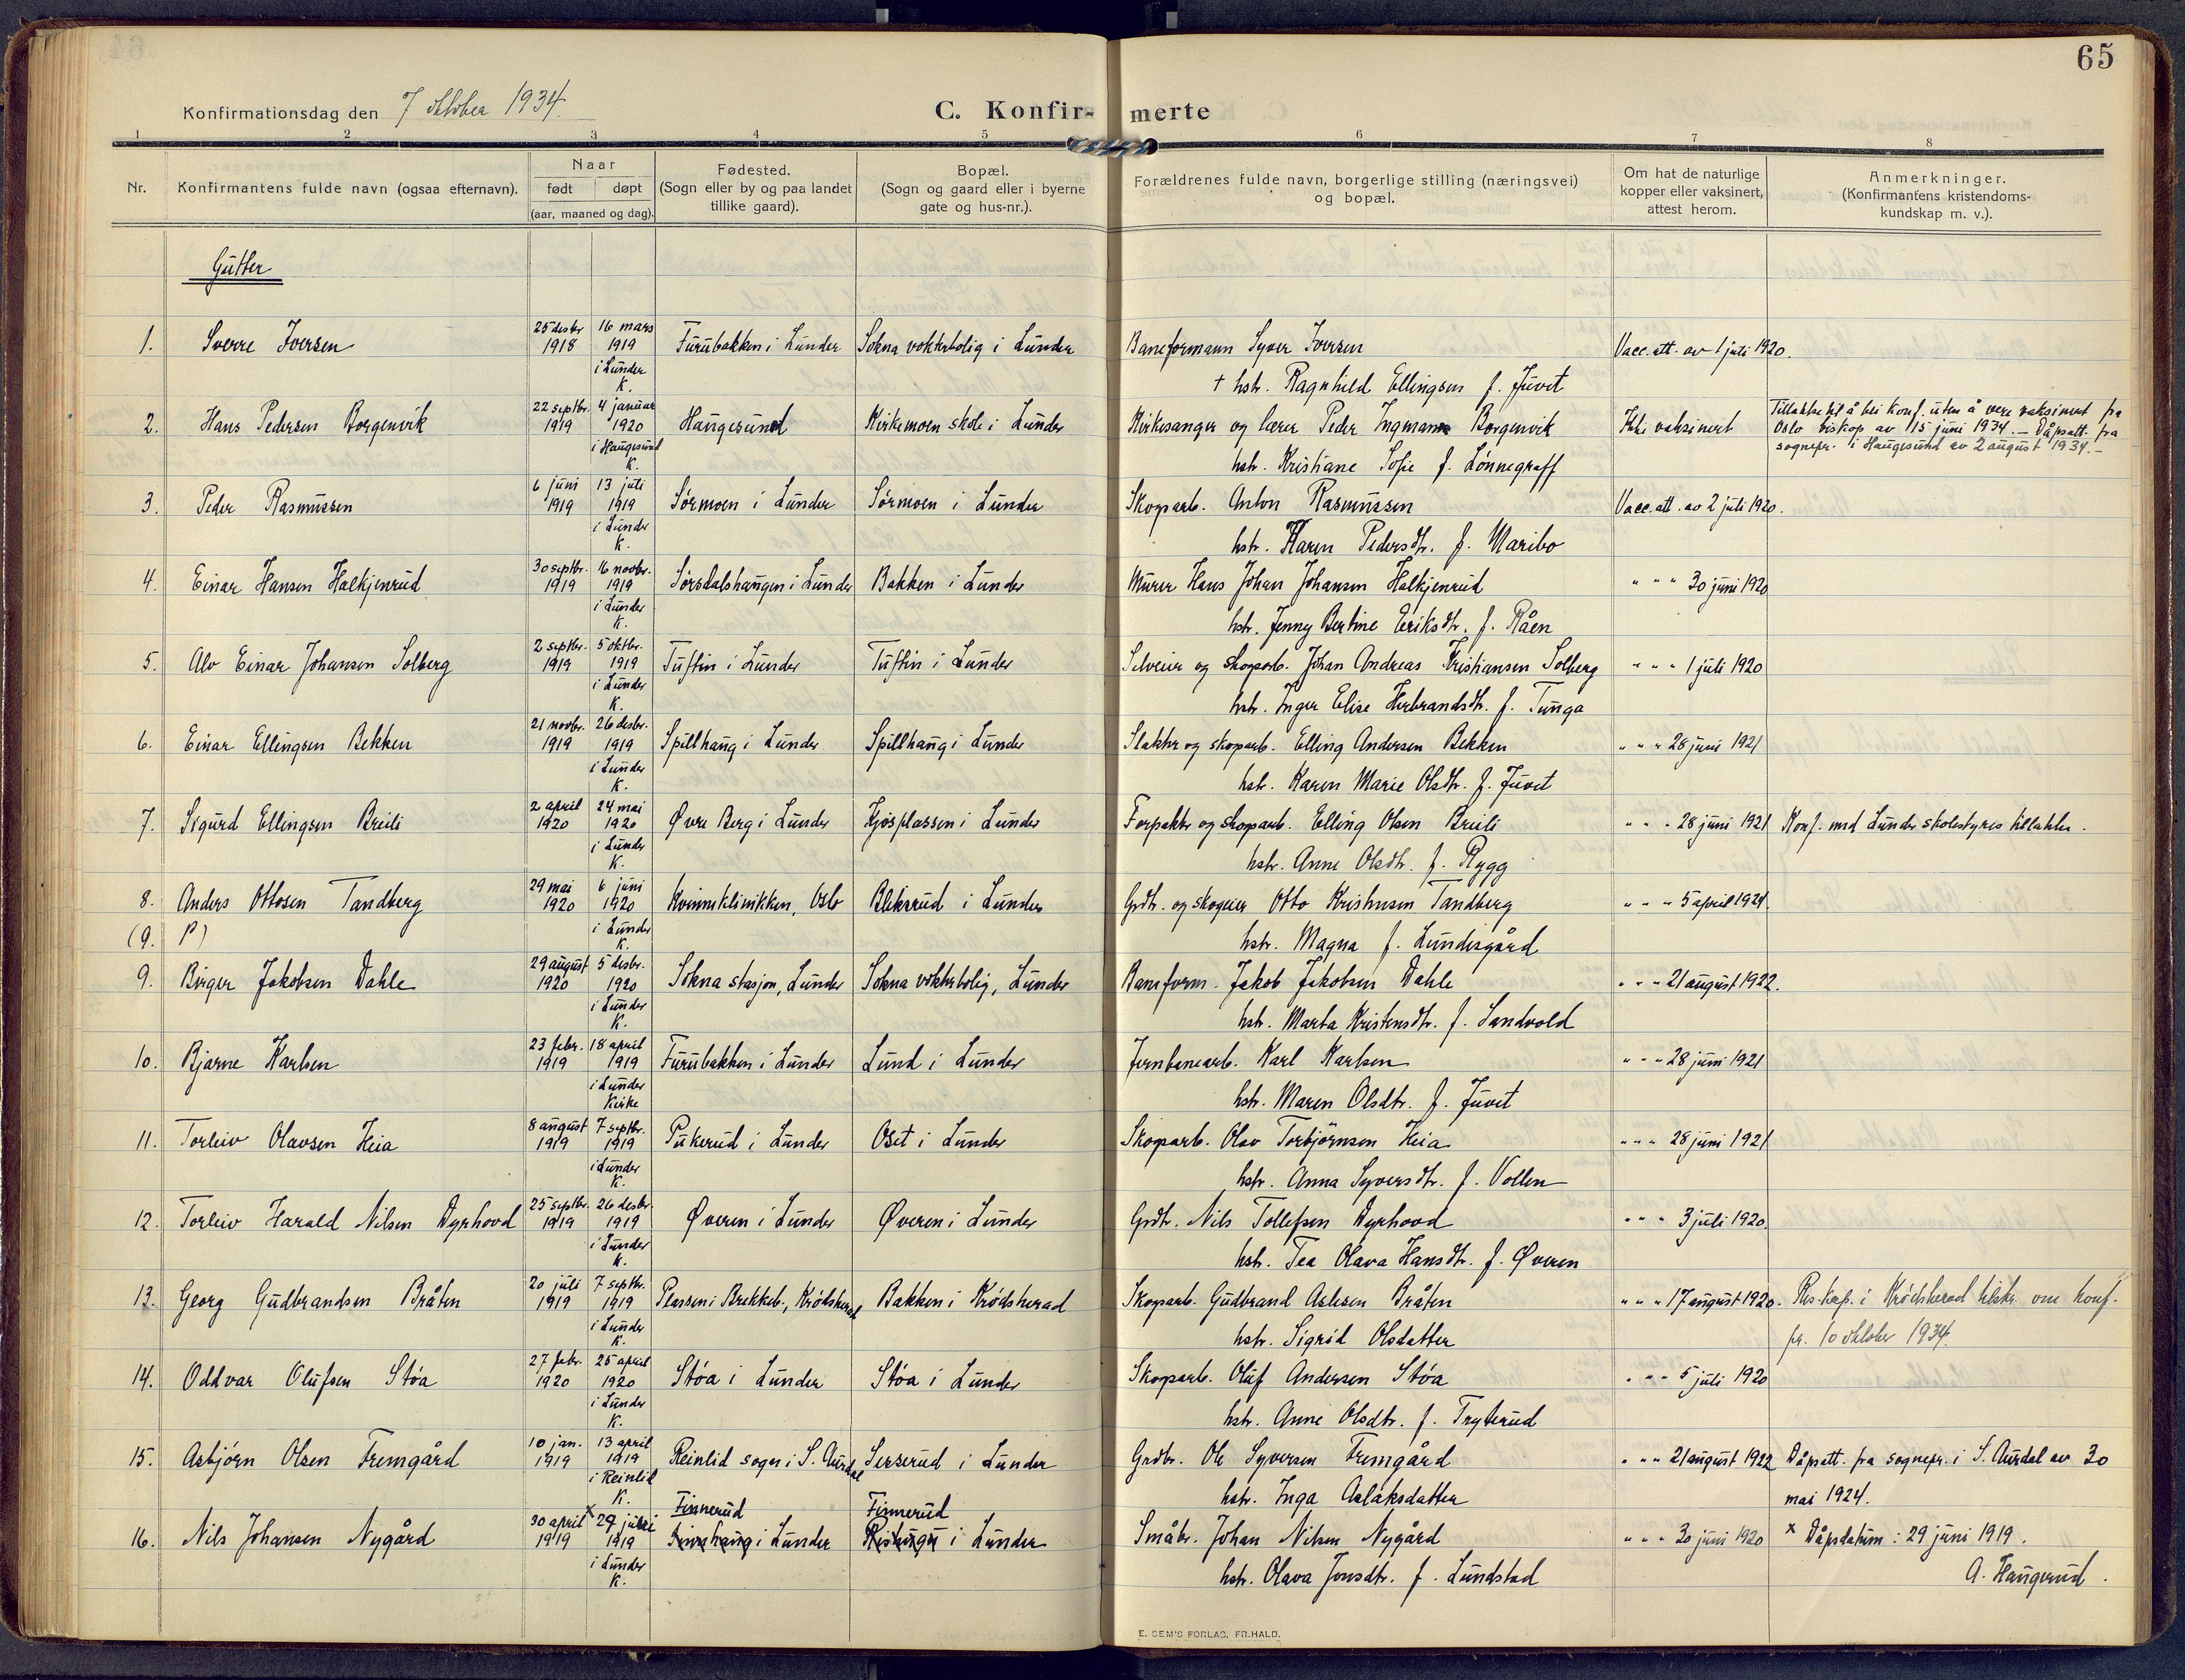 65
Konfirmationsdag den 7 oktober 1934.
C. Konfirmerte
1 2 3 4 5 6 7 8
Nr. | Konfirmantens fulde navn (ogsaa efternavn). | Naar født døpt (aar, maaned og dag). | Fødested. (Sogn eller by og paa landet tillike gaard). | Bopæl. (Sogn og gaard eller i byerne gate og hus-nr.). | Forældrenes fulde navn, borgerlige stilling (næringsvei) og bopæl. | Om hat de naturlige kopper eller vaksinert, attest herom. | Anmerkninger. (Konfirmantens kristendomskundskap m. v.).
Gutter
1. Sverre Iversen | 25 desbr 1918 | 16 mars 1919 i Lunder K. | Furubakken i Lunder | Sokna vokterbolig i Lunder | Baneformann Syver Iversen | Vacc. att. av 1 juli 1920.
+ hstr. Ragnhild Ellingsen f. Juvet
2. Hans Pedersen Borgenvik | 22 septbr. 1919 | 4 januar 1920 i Haugesund K. | Haugesund | Kirkemoen skole i Lunder | Kirkesanger og lærer Peder Ingmann Borgenvik | Ikke vaksinert | Tillatelse til å bli konf. uten å være vaksinert fra Oslo biskop av 15 juni 1934. – Dåpsatt. fra sognepr. i Haugesund av 2 august 1934. –
hstr. Kristiane Sofie f. Lønnegraff
3. Peder Rasmussen | 6 juni 1919 | 13 juli 1919 i Lunder K. | Sørmoen i Lunder | Sørmoen i Lunder | Skogsarb. Anton Rasmussen | Vacc. att. av 2 juli 1920.
hstr. Karen Pedersdtr. f. Maribo
4. Einar Hansen Halkjenrud | 30 septbr. 1919 | 16 novbr. 1919 i Lunder K. | Sørsdalshaugen i Lunder | Bakken i Lunder | Murer Hans Johan Johansen Halkjenrud | " " " 30 juni 1920
hstr. Jenny Bertine Eriksdtr. f. Råen
5. Alv Einar Johansen Solberg | 2 septbr. 1919 | 5 oktbr. 1919 i Lunder K. | Tuftin i Lunder | Tuftin i Lunder | Selveier og skogsarb. Johan Andreas Kristiansen Solberg | " " " 1 juli 1920
hstr. Inger Elise Herbrandsdtr. f. Tunga
6. Einar Ellingsen Bekken | 21 novbr. 1919 | 26 desbr. 1919 i Lunder K. | Spillhaug i Lunder | Spillhaug i Lunder | Slakter og skogsarb. Elling Andersen Bekken | " " " 28 juni 1921
hstr. Karen Marie Olsdtr. f. Juvet
7. Sigurd Ellingsen Breili | 2 april 1920 | 24 mai 1920 i Lunder K. | Øvre Berg i Lunder | Kjøsplassen i Lunder | Forpakter og skogsarb. Elling Olsen Breili | " " " 28 juni 1921 | Konf. med Lunder skolestyres tillatelse.
hstr. Anne Olsdtr. f. Rygg
8. Anders Ottosen Tandberg | 29 mai 1920 | 6 juni 1920 i Lunder K. | Kvinneklinikken, Oslo | Bleksrud i Lunder | Grdbr. og skogeier Otto Kristensen Tandberg | " " " 5 april 1921.
hstr. Magna f. Lundesgård
(9.
9. Birger Jakobsen Dahle | 29 august 1920 | 5 desbr. 1920 i Lunder K. | Sokna stasjon, Lunder | Sokna vokterbolig, Lunder | Baneform. Jakob Jakobsen Dahle | " " " 21 august 1922.
hstr. Marta Kristensdtr. f. Sandvold
10. Bjarne Karlsen | 23 febr. 1919 | 18 april 1919 i Lunder Kirke | Furubakken i Lunder | Lund i Lunder | Jernbanearb. Karl Karlsen | " " " 28 juni 1921
hstr. Maren Olsdtr. f. Juvet
11. Torleiv Olavsen Heia | 8 august 1919 | 7 septbr. 1919 i Lunder K. | Pukerud i Lunder | Oset i Lunder | Skogsarb. Olav Torbjørnsen Heia | " " " 28 juni 1921
hstr. Anna Syversdtr. f. Vollen
12. Torleiv Harald Nilsen Dyrhovd | 25 septbr. 1919 | 26 desbr. 1919 i Lunder K. | Øveren i Lunder | Øveren i Lunder | Grdbr. Nils Tollefsen Dyrhovd | " " " 3 juli 1920.
hstr. Tea Olava Hansdtr. f. Øveren
13. Georg Gudbrandsen Bråten | 20 juli 1919 | 7 septbr. 1919 i Lunder K. | Plassen i Brekkeb., Krødsherad | Bakken i Krødsherad | Skogsarb. Gudbrand Aslesen Bråten | " " " 17 august 1920. | Res. kap. i Krødsherad tilskr. om konf. pr. 10 oktober 1934.
hstr. Sigrid Olsdatter
14. Oddvar Olufsen Støa | 27 febr. 1920 | 25 april 1920 i Lunder K. | Støa i Lunder | Støa i Lunder | Skogsarb. Oluf Andersen Støa | " " " 5 juli 1920
hstr. Anne Olsdtr. f. Tryterud
15. Asbjørn Olsen Fremgård | 10 jan. 1919 | 13 april 1919 i Reinlid K. | Reinlid sogn i S. Aurdal | Serserud i Lunder | Grdbr. Ole Syversen Fremgård | " " " 21 august 1922 | Dåpsatt. fra sognepr. i S. Aurdal av 30 mai 1924.
hstr. Inga Aslaksdatter
16. Nils Johansen Nygård | 30 april 1919 | x 29 juni 1919 i Lunder K. | Finnerud i Lunder | Finnerud i Lunder | Småbr. Johan Nilsen Nygård | " " " 30 juni 1920 | x Dåpsdatum: 29 juni 1919.
hstr. Olava Jonsdtr. f. Lundstad
A. Haugerud.
E. SEM'S FORLAG, FR.HALD.